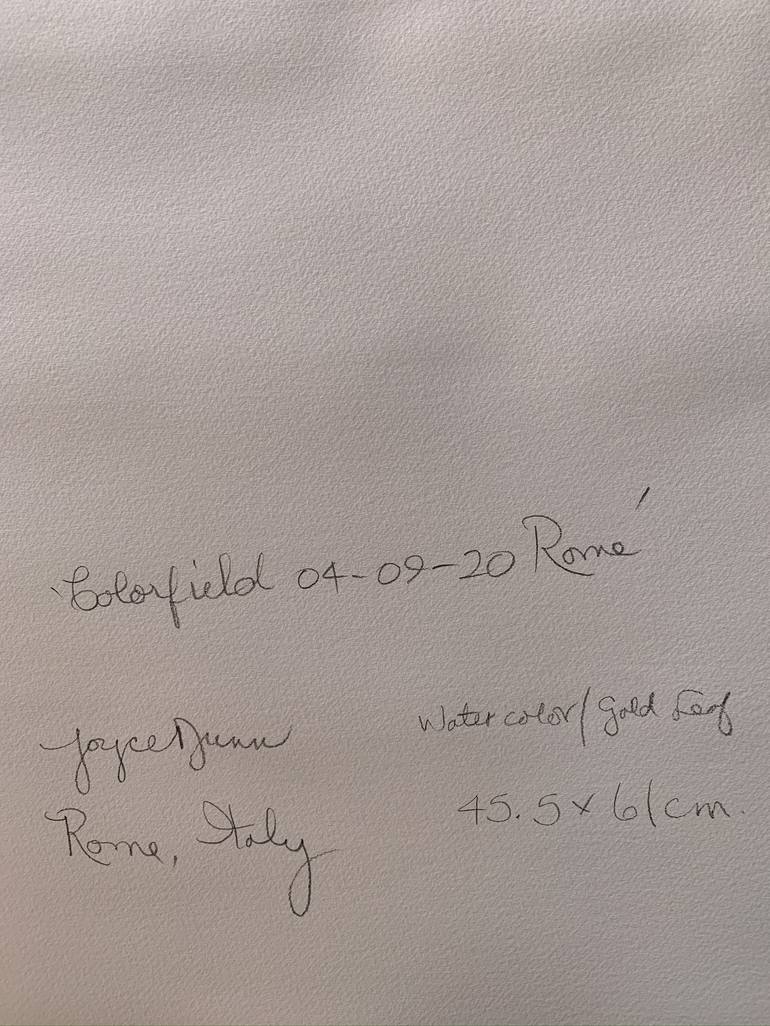 'Colorfield 04-09-20 Rome'
Joyce Dunn
Watercolor/Gold Leaf
Rome, Italy
45.5 x 61cm.